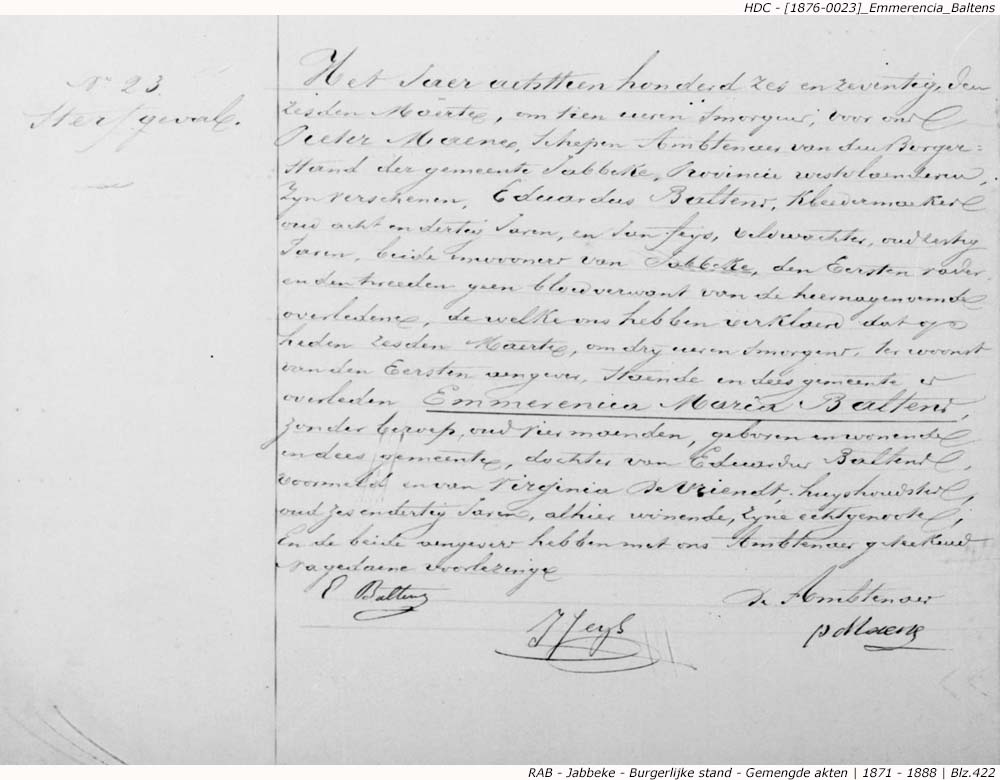 HDC - [1876-0023]_Emmerencia_Baltens
N° 23.
Sterfgeval.
Het Jaer achttien honderd zes en zeventig, den
zesden Maerte, om tien uren Smorgens, voor ons
Pieter Maene, Schepen Ambtenaer van den Borger=
Stand der gemeente Jabbeke, Provincie westvlaenderen,
Zyn verschenen, Eduardus Baltens, Kleedermaeker
oud acht en dertig Jaren, en Jan Feys, veldwachter, oud zestig
Jaren, beide inwooners van Jabbeke, den Eersten vader,
en den tweeden geen bloedverwant van de hiernagenoemde
overledene, de welke ons hebben verklaerd dat op
heden zesden Maerte, om dry uren Smorgens, ter woonst
van den Eersten aengever, Staende in dees gemeente is
overleden Emmerencia Maria Baltens,
zonder beroep, oud vier maenden, geboren en wonende
in dees gemeente, dochter van Eduardus Baltens,
voormeld en van Virginia De Vriendt, huyshoudster,
oud zes en dertig Jaren, alhier wonende, Zyne echtgenoote,
En de beide aengevers hebben met ons Ambtenaer geteekend
Na gedaene voorlezinge
E Baltens
De Ambtenaer
J Feys
P Maene
RAB - Jabbeke - Burgerlijke stand - Gemengde akten | 1871 - 1888 | Blz.422